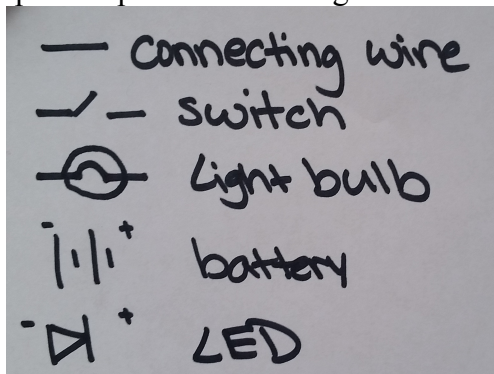 connecting wire
switch
Light bulb
- + battery
- + LED